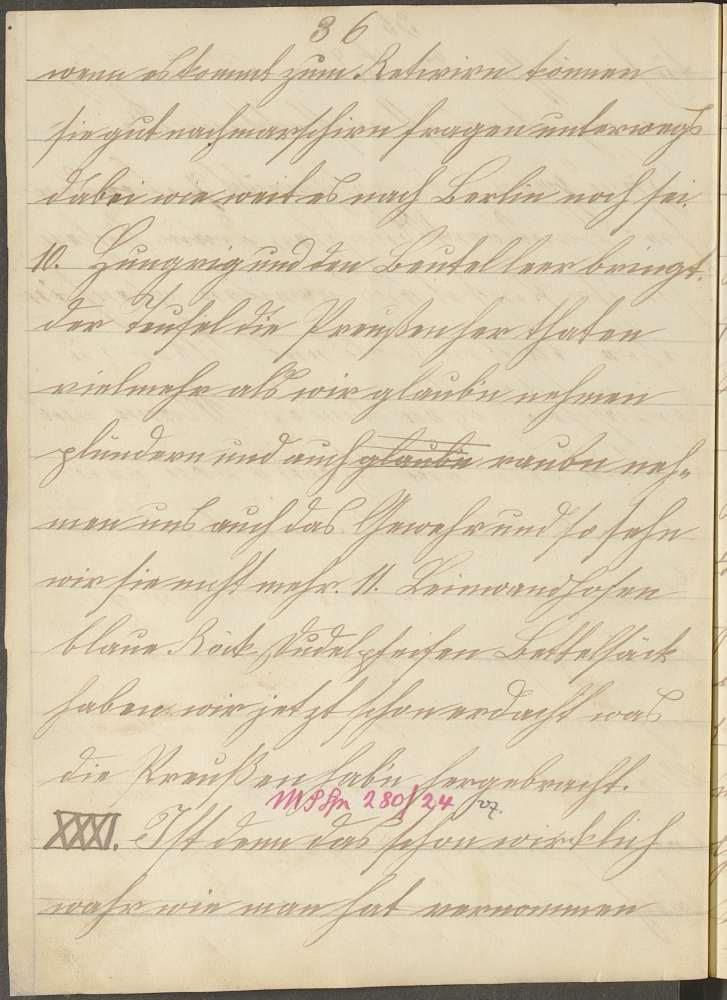 36
wenn es kommt zum Retirirn können
sie gut nachmarschirn fragen unterwegs
dabei wie weit es nach Berlin noch sei.
10. Hungrig und den Beutel leer bringt
der Teufel die Preußen her thaten
vielmehr als wir glaub'n nehmen
plündern und auch glaubn raubn neh-
men uns auch das Gewehr und so sehn
wir sie nicht mehr. 11. Leinwandhosen
blaue Röck Dudelpfeifen Bettelsäck
haben wir jetzt schon erdacht was
die Preußen hab'n hergebracht.
280/24
XXXI. Ist denn das schon wirklich
wahr wie man hat vernommen